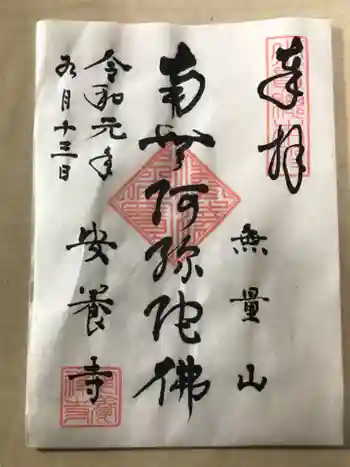 奉拝
無量山
南無阿弥陀佛
安養寺
令和元年
五月十三日